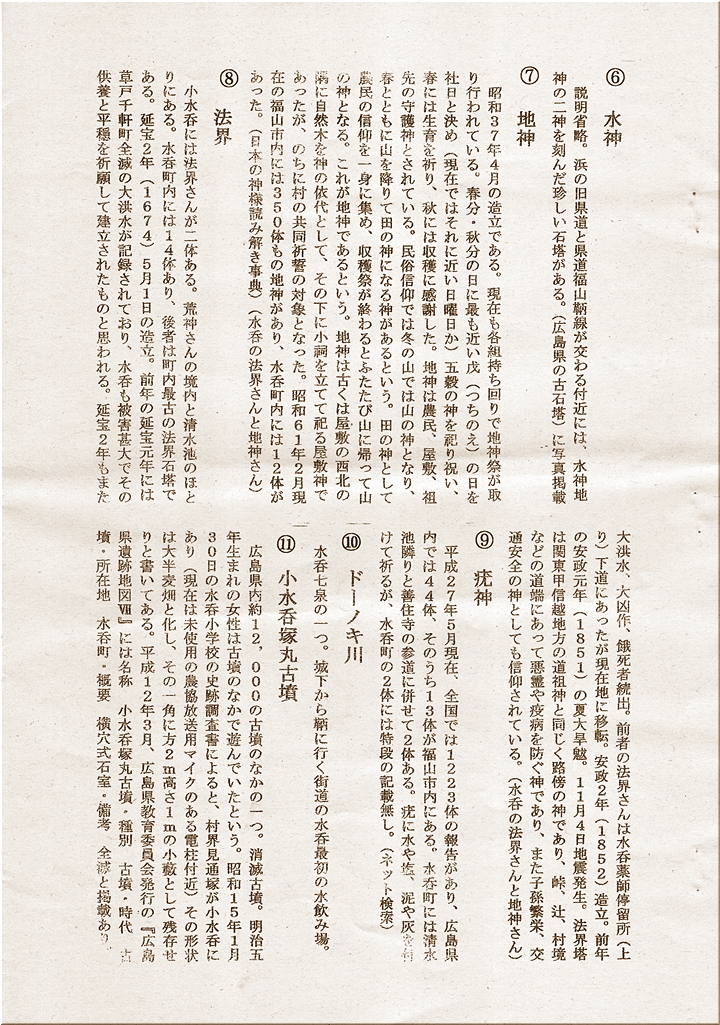 ⑥　水神
説明省略。浜の旧県道と県道福山鞆線が交わる付近には、水神地
神の二神を刻んだ珍しい石塔がある。（広島県の古石塔）に写真掲載
⑦　地神
昭和３７年４月の造立である。現在も各組持ち回りで地神祭が取
り行われている。春分・秋分の日に最も近い戊（つちのえ）の日を
社日と決め（現在ではそれに近い日曜日か）五穀の神を祀り祝い、
春には生育を祈り、秋には収穫に感謝した。地神は農民、屋敷、祖
先の守護神とされている。民俗信仰では冬の山では山の神となり、
春とともに山を降りて田の神になる神があるという。田の神として
農民の信仰を一身に集め、収穫祭が終わるとふたたび山に帰って山
の神となる。これが地神であるという。地神は古くは屋敷の西北の
隅に自然木を神の依代として、その下に小祠を立てて祀る屋敷神で
あったが、のちに村の共同祈誓の対象となった。昭和６１年２月現
在の福山市内には３５０体もの地神があり、水呑町内には１２体が
あった。（日本の神様読み解き事典）（水呑の法界さんと地神さん）
⑧　法界
小水呑には法界さんが二体ある。荒神さんの境内と清水池のほと
りにある。水呑町内には１４体あり、後者は町内最古の法界石塔で
ある。延宝２年（１６７４）５月１日の造立。前年の延宝元年には
草戸千軒町全滅の大洪水が記録されており、水呑も被害甚大でその
供養と平穏を祈願して建立されたものと思われる。延宝２年もまた
大洪水、大凶作、餓死者続出。前者の法界さんは水呑薬師停留所（上
り）下道にあったが現在地に移転。安政２年（１８５２）造立。前年
の安政元年（１８５１）の夏大旱魃。１１月４日地震発生。法界塔
は関東甲信越地方の道祖神と同じく路傍の神であり、峠、辻、村境
などの道端にあって悪霊や疫病を防ぐ神であり、また子孫繁栄、交
通安全の神としても信仰されている。（水呑の法界さんと地神さん）
⑨　疣神
平成２７年５月現在、全国では１２２３体の報告があり、広島県
内では４４体、そのうち１３体が福山市内にある。水呑町には清水
池隣りと善住寺の参道に併せて２体ある。疣に水や塩、泥や灰を付
けて祈るが、水呑町の２体には特段の記載無し。（ネット検索）
⑩　ドーノキ川
水呑七泉の一つ。城下から鞆に行く街道の水呑最初の水飲み場。
⑪　小水呑塚丸古墳
広島県内約１２，０００の古墳のなかの一つ。消滅古墳。明治五
年生まれの女性は古墳のなかで遊んでいたという。昭和１５年１月
３０日の水呑小学校の史跡調査書によると、村界見通塚が小水呑に
あり（現在は未使用の農協放送用マイクのある電柱付近）その形状
は大半麦畑と化し、その一角に方２ｍ高さ１ｍの小藪として残存せ
りと書いてある。平成１２年３月、広島県教育委員会発行の『広島
県遺跡地図Ⅶ』には名称　小水呑塚丸古墳・種別　古墳・時代　古
墳・所在地　水呑町・概要　横穴式石室・備考　全滅と掲載あり。